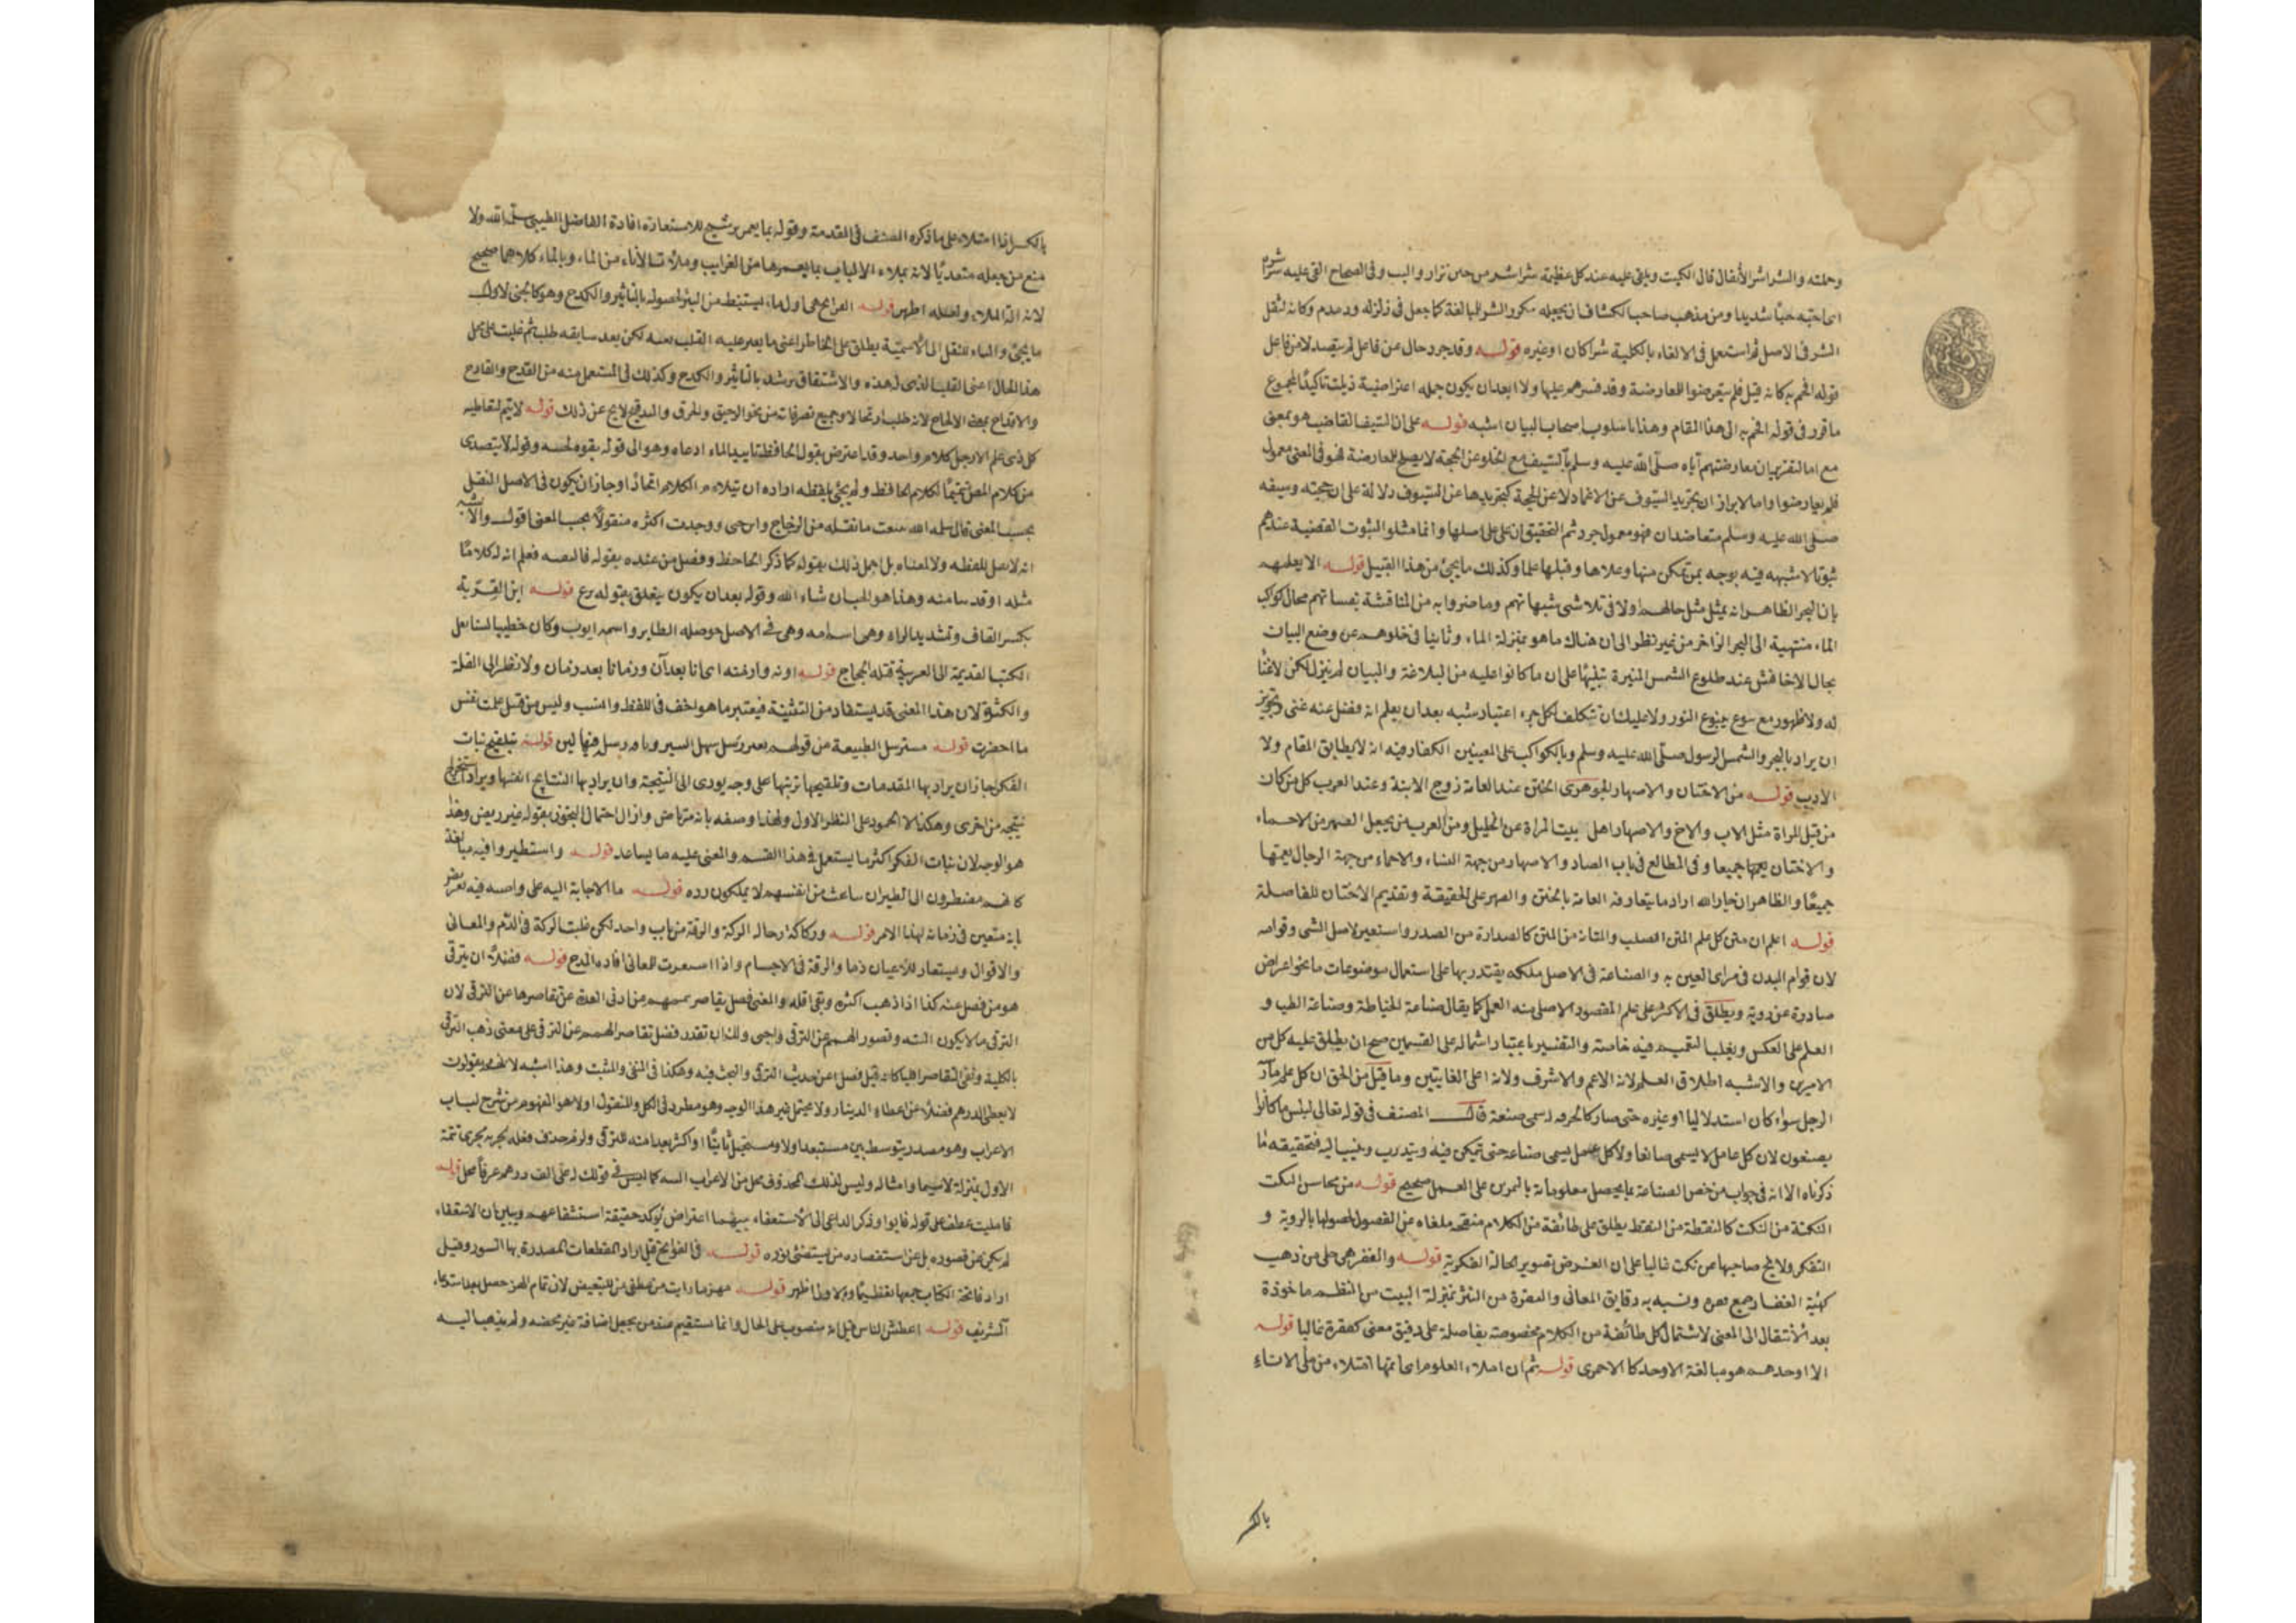 وجملته والشراشر الأثقال قال الكميت ويلقى عليه عند كل عظيمة شراشر من حي نزار والبب وفي الصحاح القى عليه شراشره
اى احبه حبا شديدا ومن مذهب صاحب الكشاف ان يجعله مكرر الشر للمبالغة كما جعل في زلزله ودمدم وكانه لثقل
الشر في الاصل ثم استعمل في الالقاء بالكلية شرا كان او غيره قوله وقد جرد حال عن فاعل لم يتصد لا من فاعل
قوله افحم به كانه قيل فلم يتعرضوا للمعارضة وقد قسرهم عليها ولا ابعد ان يكون جمله اعتراضية ذيلت تاكيدا لمجموع
ما قرر في قوله افحم به الى هذا المقام وهذا باسلوب اصحاب البيان اشبه قوله على ان السيف القاضب هو بمعنى
مع اما لتقرير ان معارضتهم اياه صلى الله عليه وسلم بالسيف مع الخلو عن الحجة لا يصلح للمعارضة فهو في المعنى معمول
فلم يعارضوا واما لابراز ان تجريد السيوف عن الاغماد لا عن الحجة كتجريدها عن السيوف دلالة على ان حجته وسيفه
صلى الله عليه وسلم متعاضدان فهو معمول جرد ثم التحقيق ان على على اصلها وانما مثلوا لثبوت القضية عندهم
ثبوتا لا شبهه فيه بوجه بمن تمكن منها وعلاها وقبلها علما وكذلك ما يجئ من هذا القبيل قوله الا يعلمهم
بان البحر الظاهر انه يمثل مثل حالهم اولا في تلاشى شبهاتهم وما ضروا به من المناقشة بفساتهم بحال كواكب
الماء منتهية الى البحر الزاخر من غير نظر الى ان هناك ما هو بمنزلة الماء وثانيا في خلوهم عن وضع البيات
بحال الاخافش عند طلوع الشمس المنيرة تنبيها على ان ما كانوا عليه من البلاغة والبيان لم يزل لكن لا غنا
له ولا ظهور مع نبوع ينبوع النور ولا عليك ان تتكلف لكل جزء اعتبار شبه بعد ان يعلم انه فضل عنه غنى وتجويز
ان يراد بالبحر والشمس الرسول صلى الله عليه وسلم وبالكواكب على المعنيين الكفار فيه انه لا يطابق المقام ولا
الادب قوله من الاختان والاصهار الجوهرى الختن عند العامة زوج الابنة وعند العرب كل من كان
من قبل المراة مثل الاب والاخ والاصهار اهل بيت المراة عن الخليل ومن العرب من يجعل الصهر من الاحماء
والاختان يعمها جميعا وفي المطالع في باب الصاد والاصهار من جهة النساء والاحماء من جهة الرجال يعمها
جميعا والظاهر ان جار الله اراد ما يتعارفه العامة بالختن والصهر على الحقيقة وتقديم الاختان للفاصلة
قوله اعلم ان متن كل علم المتن الصلب والمتانة من المتن كالصدارة من الصدر واستعير لاصل الشى وقوامه
لان قوام البدن في مراى العين به والصناعة في الاصل ملكه يقتدر بها على استعمال موضوعات ما نحو اغراض
صادرة عن روية ويطلق في الاكثر على علم المقصود الاصلي منه العمل كما يقال صناعة الخياطة وصناعة الطب و
العلم على العكس ويغلب التعميم فيه خاصة والتفسير باعتبار اشتماله على القسمين صح ان يطلق عليه كل من
الامرين والاشبه اطلاق العلم لانه الاعم والاشرف ولانه اعلى الغايتين وما قيل من الحق ان كل علم مارسه
الرجل سواء كان استدلاليا او غيره حتى صار كالحرفه له سمى صنعة قال المصنف في قوله تعالى لبئس ما كانوا
يصنعون لان كل عامل لا يسمى صانعا ولا كل عمل يسمى صناعة حتى يتمكن فيه ويتدرب وينسب اليه فتحقيقه ما
ذكرناه الا انه في جواب من خص الصناعة بما يحصل معلوماته بالتمرن على العمل صحيح قوله من محاسن النكت
النكتة من النكت كالنقطة من النقط يطلق على طائفة من الكلام منقحه ملغاه عن الفضول لحصولها بالروية و
التفكر ولا يخ صاحبها من نكت غالبا على ان الغرض تصوير الحالة الفكرية قوله والفقر هى حلى من ذهب
كهيئة الفقار جمع وشبه به دقايق المعانى والفقرة من النثر بمنزلة البيت من النظم ماخوذة
بعد الانتقال الى المعنى لاشتمال كل طائفة من الكلام مخصوصة بفاصلة على دقيق معنى كفقرة غالبا قوله
الا اوحدهم هو مبالغة الاوحد كالاحمرى قوله ثم ان املاء العلوم اى اتمها امتلاء من ملى الاناء
بالكسر
بالكسر اذا امتلاء على ما ذكره المصنف في المقدمة وقوله بما يغمر ترشيح للاستعارة افادة الفاضل الطيبى سلمه الله ولا
منع من جعله متعديا لانه يملاء الالباب بما يغمرها من الغرايب وملات الأناء من الماء وبالماء كلاهما صحيح
لانه الة الملاء ولعله اظهر قوله القرائح هى اول ما يستنبط من البئر لحصوله بالتاثير والكدح وهو كما يجنى لاول
ما يجئ والتاء للنقل الى الاسمية يطلق على الخاطر اعنى ما يعبر عليه القلب نفسه لكن بعد سابقه طلب ثم غلبت على محل
هذا الحال اعنى القلب الذى لهذه والاشتقاق يرشد بالتاثير والكدح وكذلك في المستعمل منه من القدح والقارح
والاقتراح بمعنى الالحاح لانه طلب ارتجالا وجميع تصرفات من نحو الاحرق والحرق والبدقيح لا يخ عن ذلك قوله لا يتم لتعاطيه
كل ذى علم الاجل كلام واحد وقد اعترض بقول الحافظ تاييدا لما ادعاه وهو الى قوله يقوه لحسه وقوله لا يتصدى
من كلام المص تتميما لكلام الحافظ ولم يجئ بلفظه اراده ان يتلاءم الكلام اتحادا وجاز ان يكون في الاصل النقل
بحسب المعنى قال سلمه الله تتبعت ما نقله من الزجاج وابن جنى ووجدت اكثره منقولا بحسب المعنى اقول والاشبه
انه لا نقل للفظه ولا لمعناه بل اجمل ذلك بقوله كما ذكر الجاحظ وفصل من عنده بقوله فالفقيه فعلم انه له كلاما
مثله او قد سامنه وهذا هو الحيان شاء الله وقوله بعد ان يكون يتعلق بقوله برع قوله ابن القرية
بكسر القاف وتشديد الراء وهى اسم امه وهى في الاصل حوصلة الطاير واسمه ايوب وكان خطيبا لسنا نقل
الكتب القديمة الى العربية قتله الحجاج قوله اونه وازمنه اى انا بعد آن وزمانا بعد زمان ولا نظر الى القلة
والكثرة لان هذا المعنى قد يستفاد من التثنية فيعتبر ما هو اخف في اللفظ وانسب وليس من قبيل علمت نفس
ما احضرت قوله مسترسل الطبيعة من قولهم بعير رسل سهل السير وناقه رسل فيها لين قوله بتلقيح نبات
الفكر جاز ان يراد بها المقدمات وتلقيحها ترتيبها على وجه يودى الى النتيجة وان يراد بها النتايج انفسها ويراد استنتاج
نتيجه من اخرى وهكذا لا الجمود على النظر الاول ولهذا وصفه بانه مرتاض وازال احتمال التجوز بقوله غير ريض وهذا
هو الوجه لان نبات الفكر اكثر ما يستعمل في هذا القسم والمعنى عليه ما يساعد قوله واستطيروا فيه مبالغة
كانهم مضطرون الى الطيران ساعت من انفسهم لا يملكون رده قوله ما الاجابة اليه على واجبه فيه تعريض
بانه متعين في زمانه لهذا الامر قوله وركاكة رجاله الركة والرقة من باب واحد لكن غلبت الركة في الذم والمعانى
والاقوال ويستعار للأعيان ذما والرقة في الاجسام واذا استعيرت للمعانى افاده المدح قوله فضلا ان يترقى
هو من فضل عنه كذا اذا ذهب اكثره وبقى اقله والمعنى فضل تقاصر هممهم عن ادنى العدة عن تقاصرها عن الترقى لان
الترقى ما لا يكون البته وقصور الهمم عن الترقى واجبى ولك ان تقدر فضل تقاصر الهمم عن الترقى على معنى ذهب الترقى
بالكلية وبقى التقاصر اهيا كانه قيل فضلا عن حديث الترقى والبحث فيه وهكذا في النفى والمثبت وهذا اشبه لانهم يقولون
لا يعطى الدرهم فضلا عن اعطاء الدينار ولا يحتمل غير هذا الوجه وهو مطرد في الكل والمنقول اولا هو المفهوم من شرح لباب
الاعراب وهو مصدر يتوسط بين مستبعد اولا ومستحيل ثانيا او اكثر بعدا منه للترقى ولزم حذف فعله لجريه مجرى تتمة
الاول بمنزلة لاسيما وامثاله وليس لذلك المحذوف محل من الاعراب البته كما ليس في قولك له على الف درهم عرفا محل قوله
فامليت عطف على قوله فابوا وذكر الداعى الى الاستعفاء بينهما اعتراض يؤكد حقيقة استشفاعهم ويبين ان الاستعفاء
لم يكن عن قصوره بل عن استقصاره من يستضئ بنوره قوله في الفواتح قيل اراد المقطعات المصدرة بها السور وقيل
اراد فاتحة الكتاب جمعها تعظيما والاول اظهر قوله مهزما رايت من عطفى من للتبعيض لان تمام الهز حصل بعد استدعاء
الشريف قوله اعطش الناس قيل انه منصوب على الحال وانما يستقيم عند من يجعل اضافة غير محضه ولم يذهب اليه